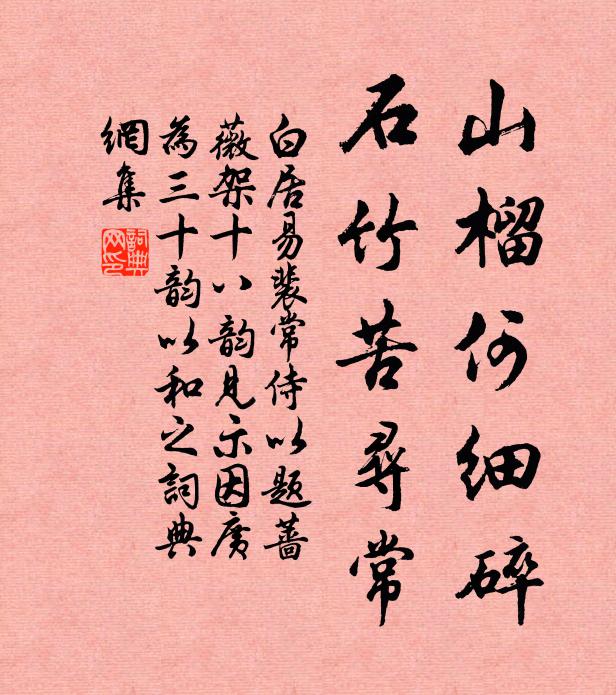 山榴何细碎
石竹苦尋常
白居易裴常侍以题蔷
薇架十八韵见示因廣
為三十韵以和之詞典
網集
詞典网印